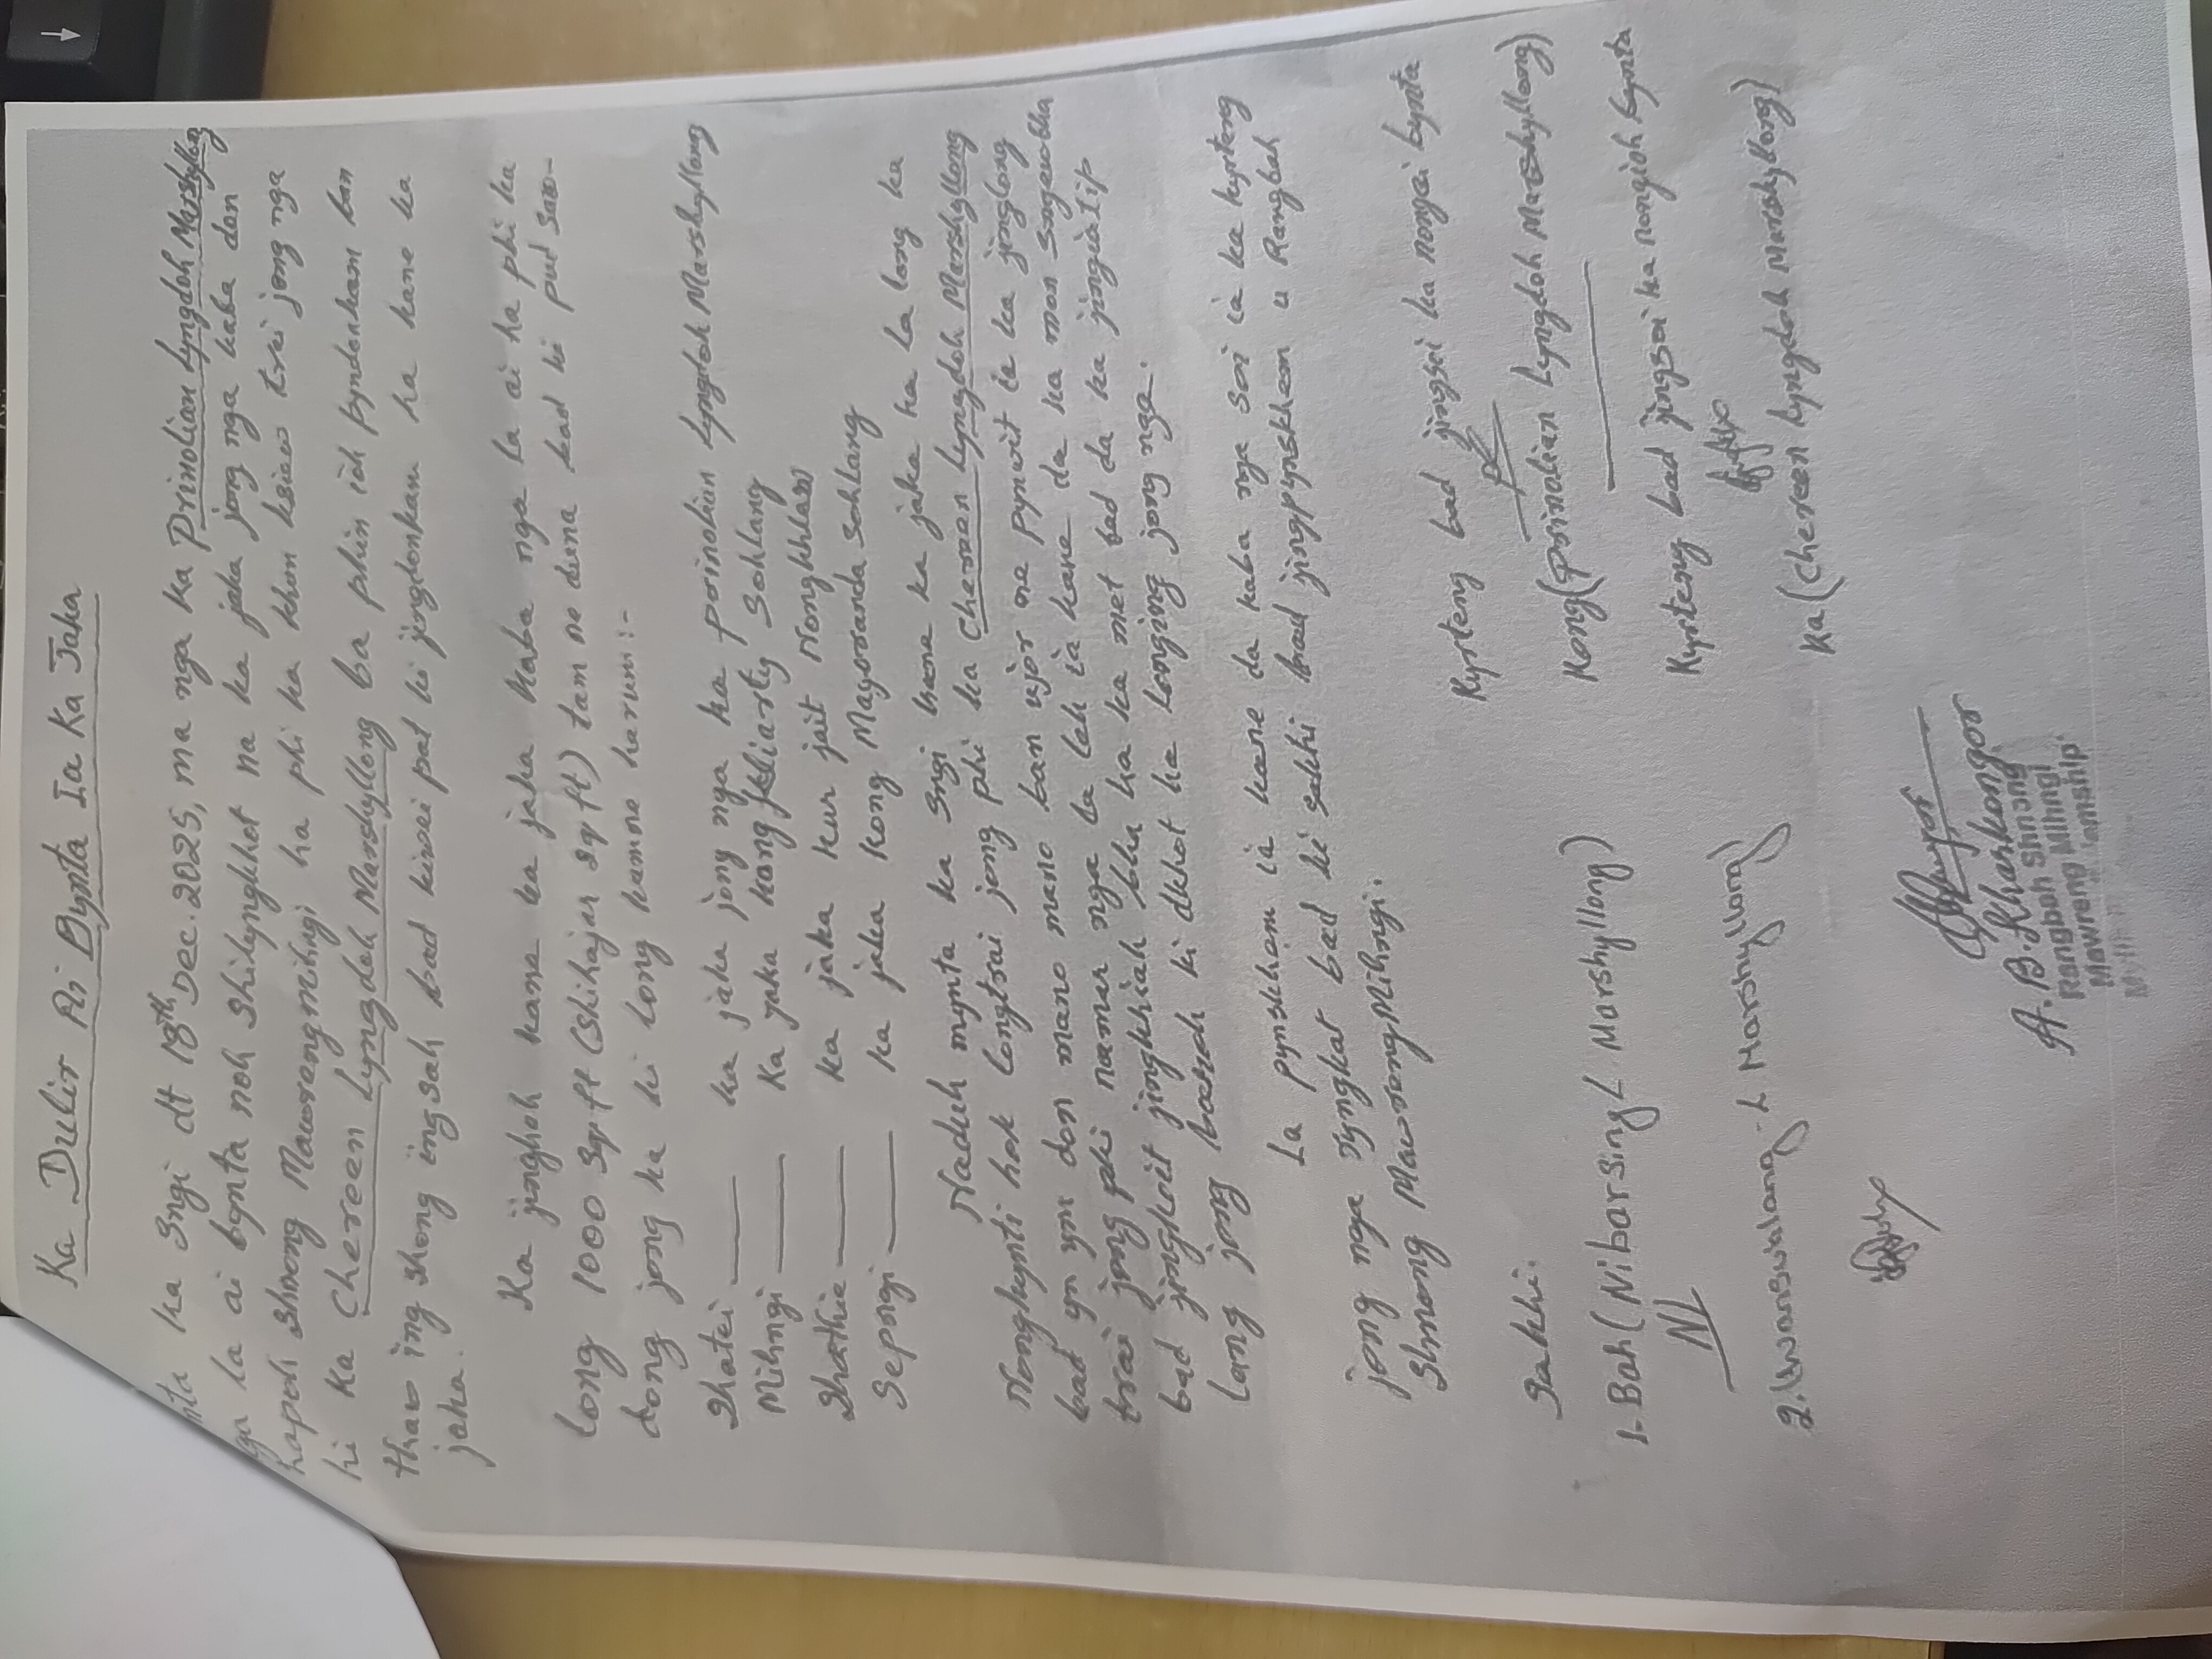 Ka Dulir Ai Bynta Ia Ka Jaka
nta ka sngi dt 18th Dec. 2025, ma nga ka Prinolian Lyngdoh Marshyllong
nga la ai bynta noh shilynghot na ka jaka jong nga kaba don
hapoh shnong Mawrongmihngi ha phi ka khun ksiew trai jong nga
hi ka Chereen Lyngdoh Marshyllong ba phin ioh pyndonkam ban
thaw ing shong ing sah bad kiwei pat ki jingdonkam ha kane ka
jaka.
Ka jingheh kane ka jaka kaba nga la ai ha phi ka
long 1000 Sq. ft (shihajar sq ft) tam ne duna bad ki pud saw-
dong jong ka ki long kumne harum:-
Shatei —— ka jaka jong nga ka prinolian Lyngdoh Marshyllong
Mihngi —— Ka jaka kong Sohlang
Shathie —— ka jaka kur jait Nongkhlaw
Sepngi —— ka jaka kong Mayoranda Sohlang
Naduh mynta ka sngi kane ka jaka ka la long ka
Nongkynti hok longtrai jong phi ka Chereen Lyngdoh Marshyllong
bad yn ym don mano mano ban ujor ne pynwit ia ka jinglong
trai jong phi namar nga la leh ia kane da ka mon sngewbha
bad jingkoit jingkhiah bha ka ka met bad da ka jingiatip
lang jong baroh ki dkhot ka longing jong nga.
La pynskhem ia kane da kaba nga soi ia ka kyrteng
jong nga ryngkat bad ki sakhi bad jingpynskhem u Rangbah
Shnong Mawrongmihngi.
Kyrteng bad jingsoi ka nongai bynta
PL
Kong (Prinolian Lyngdoh Marshyllong)
Kyrteng bad jingsoi ka nongioh bynta
Ka (Chereen Lyngdoh Marshyllong)
Sakhi:
1. Bah (Nibarsing L Marshyllong)
NL
2. (Wansuklang. L Marshyllong)
A. B. Kharkongor
Rangbah Shnong
Mawreng Mihngi